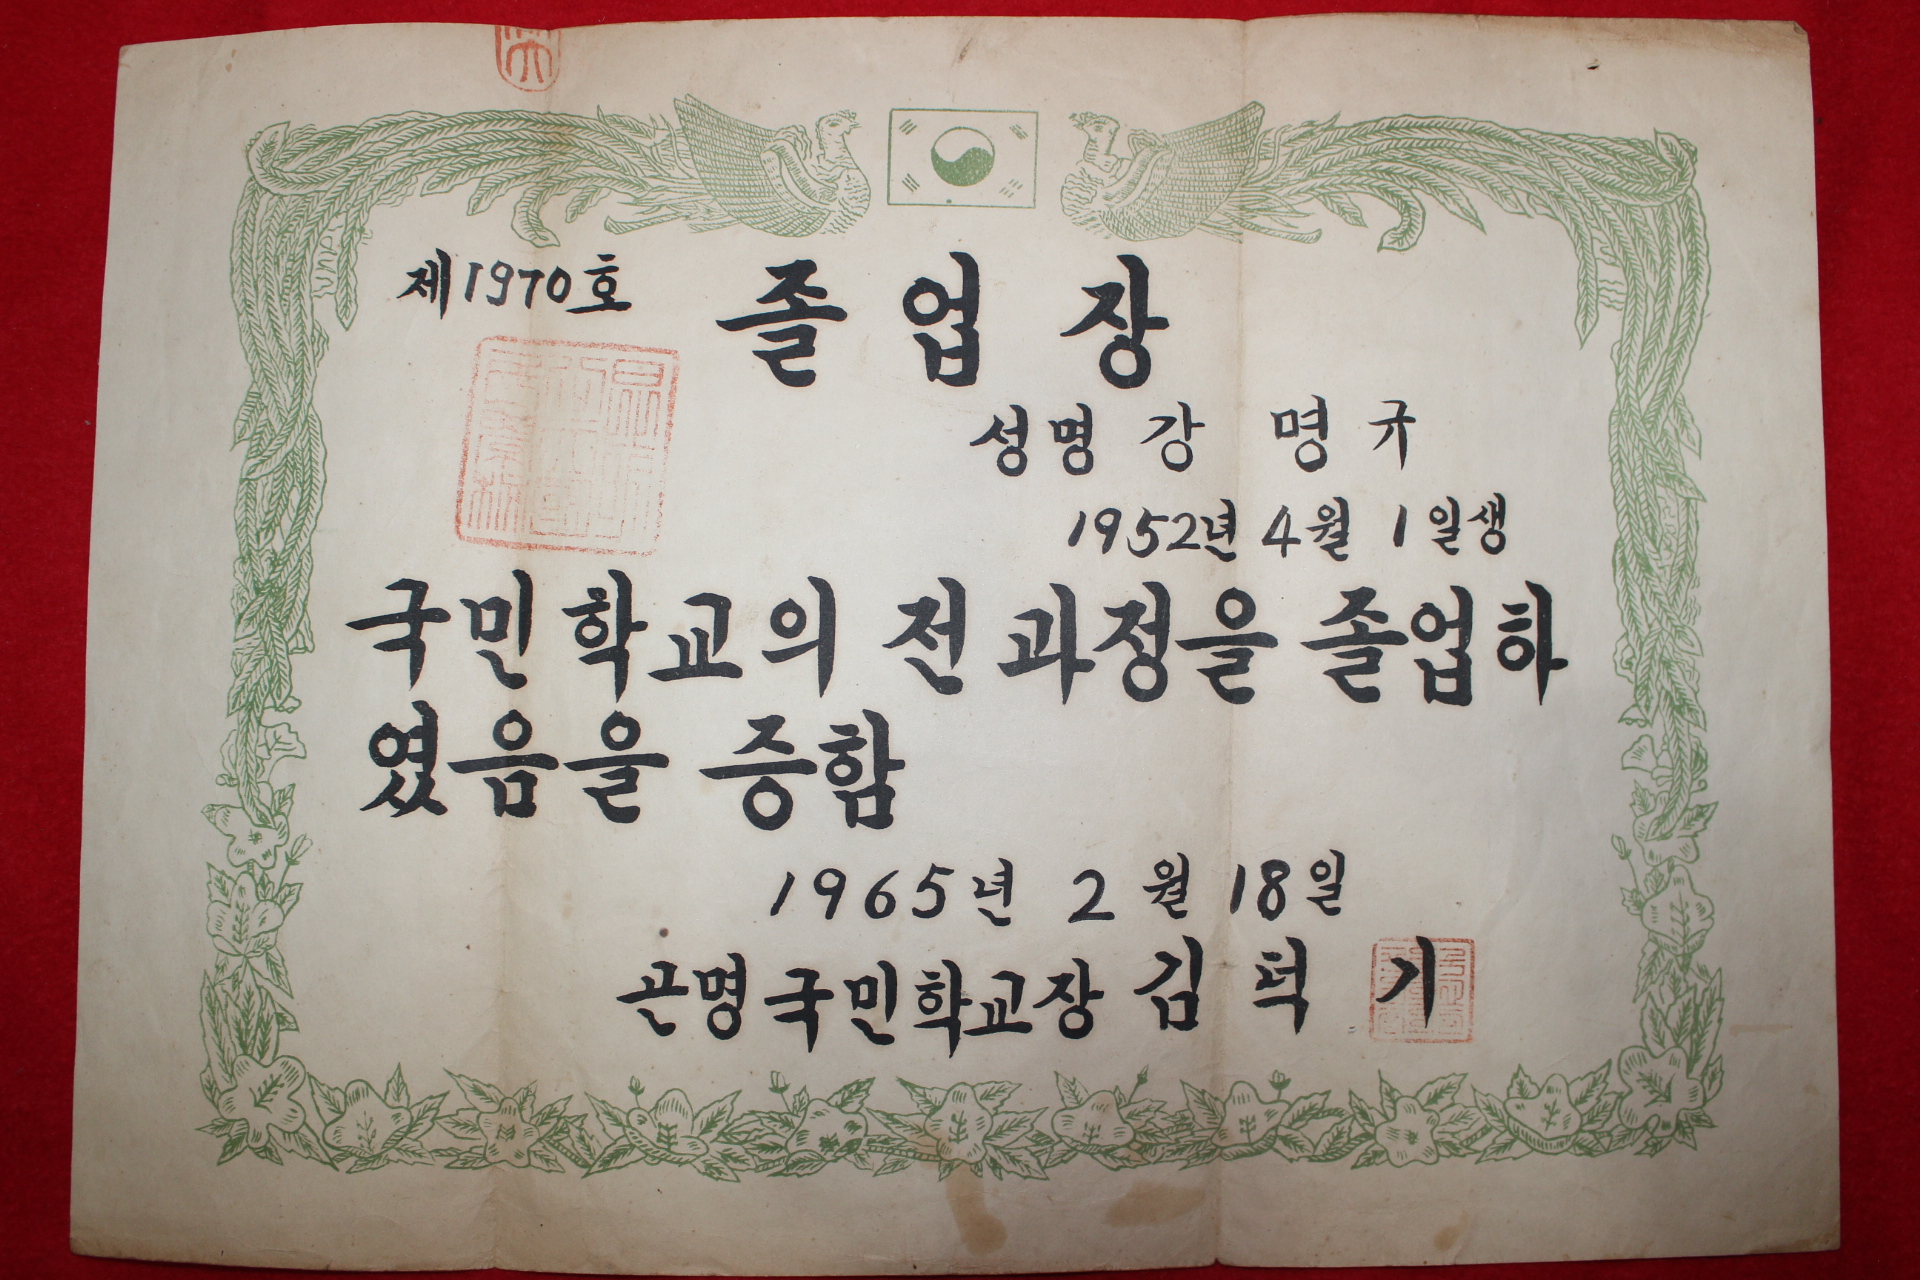 제1970호
졸업장
성명 강 명 규
1952년 4월 1일생
국민학교의 전 과정을 졸업하
였음을 증함
1965년 2월 18일
곤명국민학교장 김 덕 기